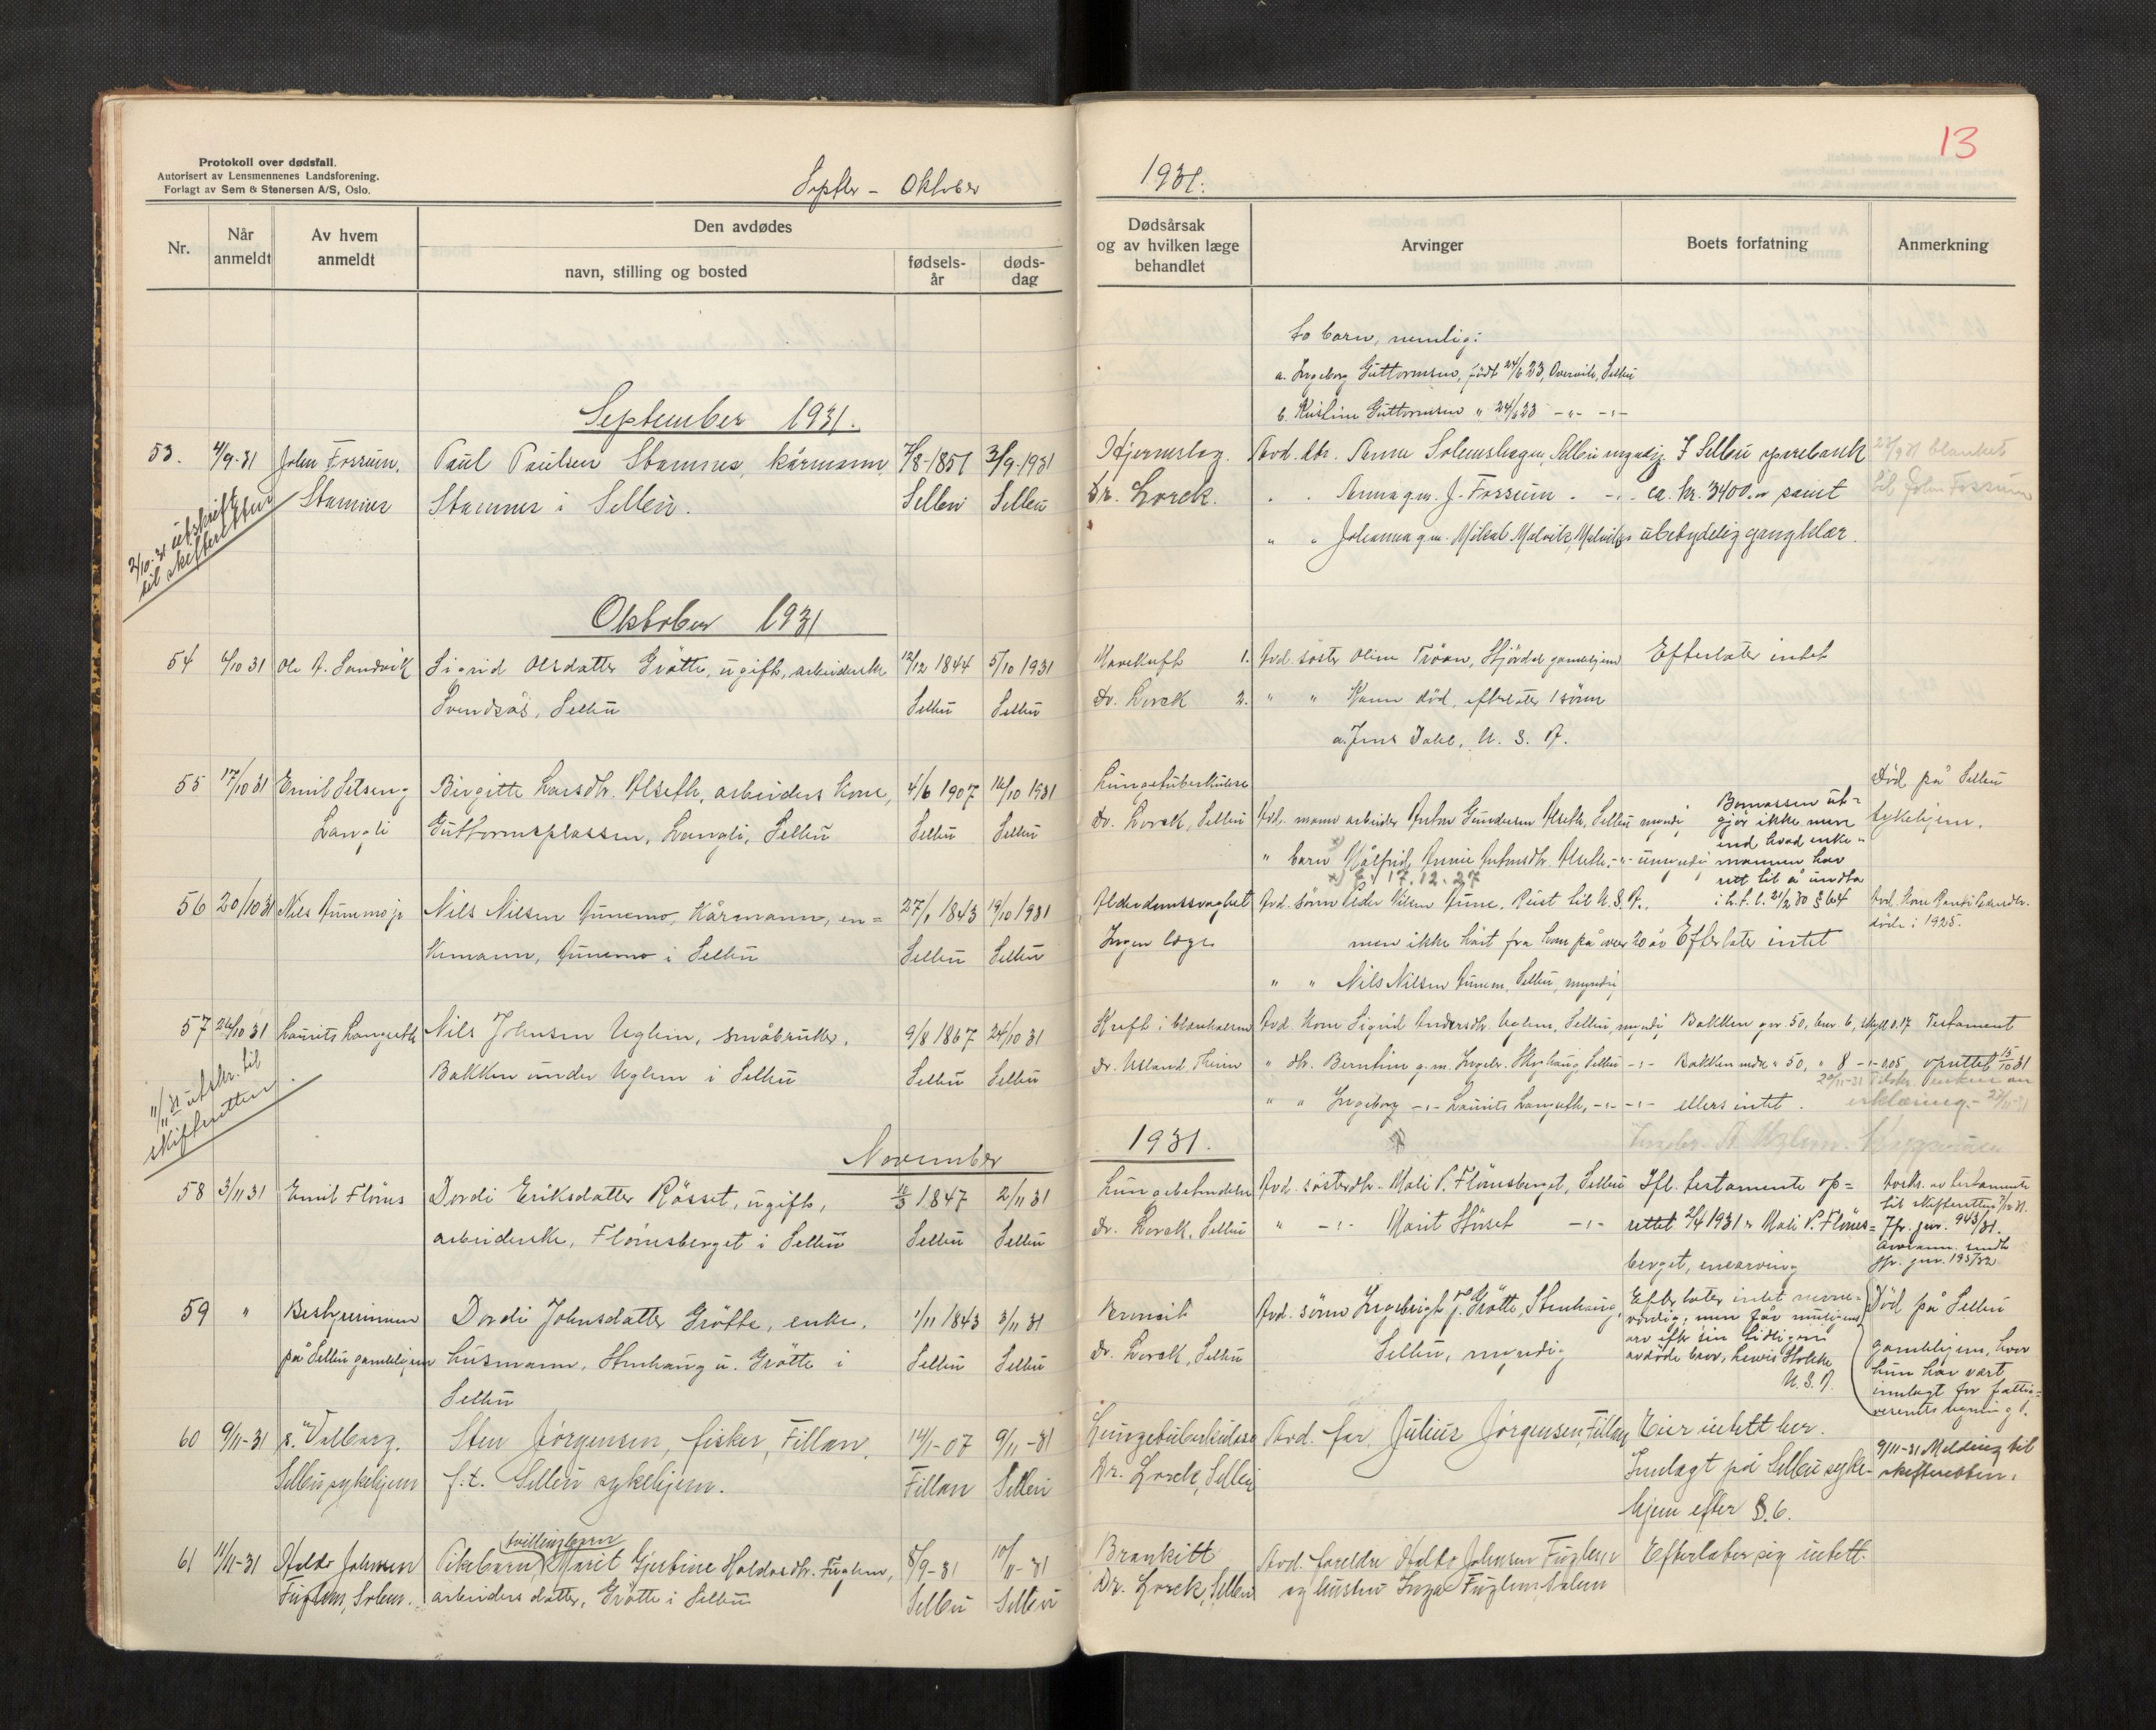 13
Protokoll over dødsfall.
Autorisert av Lensmennenes Landsforening.
Forlagt av Sem & Stenersen A/S, Oslo.
Septbr - Oktober 1931.
Nr.
Når anmeldt
Av hvem anmeldt
Den avdødes
navn, stilling og bosted
fødsels-år
døds-dag
Dødsårsak og av hvilken læge behandlet
Arvinger
Boets forfatning
Anmerkning
to barn, nemlig:
a. Ingeborg Guttormsen, født 24/6 23, Overvik, Selbu
b. Kristine Guttormsen " 24/6 23 -"- -"-
September 1931.
53. 4/9-31 John Fossum, Paul Paulsen Stamnes, kårmann, 7/8-1851 3/9-1931 Hjerneslag. Avd. dtr. Anne Solemshagen, Selbu myndig. I Selbu sparebank 23/9 31 blankett
Stamnes Stamnes i Selbu. Selbu Selbu Dr. Lorck. " " Anna g.m. J. Fossum -"- ca. kr. 3400.00 samt til John Fossum
" " Johanna g.m. Mikal Malvik, Malvik ubetydelig gangklær.
2/10-31 utskrift
til skifteretten
Oktober 1931
54 6/10 31 Ole A. Sandvik Sigrid Olsdatter Grøtte, ugift, arbeiderske 12/12 1844 5/10 1931 1. Avd. søster Oline Trøan, Stjørdal gamlehjem Efterlater intet
Svendsås, Selbu Selbu Selbu Dr. Lorck 2. " " død, efterlater 1 sønn
a. Jens Dahl, U. S. A.
55 17/10 31 Emil Setseng Birgitte Larsdtr. Alseth, arbeiders kone, 4/6 1907 16/10 1931 Lungetuberkulose Død på Selbu
Langli Guttormsplassen, Langli, Selbu Selbu Selbu Dr. Lorck, Selbu Avd. mann arbeider Anton Gundersen Alseth, Selbu myndig sykehjem.
" barn Målfrid Annie Antonsdtr. Alseth -"- umyndig
x) f. 17.12.27
Bomassen ut-
gjør ikke mere
end hvad enke-
mannen har
rett til å undta
i h. t. l. 21/2 30 § 64
56 20/10 31 Nils Aunemo jr Nils Nilsen Aunemo, Kårmann, en= 27/1 1843 19/10 1931 Alderdomssvaghet Avd. sønn Peder Nilsen Aune. Reist til U. S. A.,
kemann, Aunemo i Selbu Selbu Selbu Ingen læge men ikke hørt fra ham på over 20 år Efterlater intet døde i 1925.
" " Nils Nilsen Aunemo, Selbu, myndig
57 26/10 31 Laurits Langseth Nils Johnsen Uglem, småbruker, 9/8 1867 24/10 31 Kreft i Avd. kone Sigrid Andersdtr. Uglem, Selbu, myndig Bakken gnr. 50, bnr. 6, skyld 0.17 Testament
Bakken under Uglem i Selbu Selbu Selbu " dtr. Berntine g.m. Ingebr. Selbu -"- Bakken nedre " 50, " 8 -"- 0.05 oprettet 15/10 31
" " Ingeborg -"- Laurits Langseth, -"- -"- ellers intet. erklæring.
11/11 31 utskr. til
skifteretten.
November 1931.
58 3/11 31 Emil Flønes Dordi Eriksdatter Røsset, ugift, 1847 2/11 31 Lungebetendelse Avd. søsterdtr. Mali P. Flønesberget, Selbu Ifl. testamente op= Avskr. av testamente
arbeiderske, Flønesberget i Selbu Selbu Selbu Dr. Lorck, Selbu " -"- Marit -"- rettet 2/4 1931 er Mali P. Flønes= til skifteretten
berget, enearving Jfr. jnr. 943/31.
jfr. jnr. 195/32
59 " Bestyrerinnen Dordi Johnsdatter Grøtte, enke, 1/11 1843 3/11 31 Bronchit Avd. sønn Ingebrigt J. Grøtte, Stenhaug, Efterlater intet Død på Selbu
på Selbu gamlehjem husmann, Stenhaug u. Grøtte i Selbu Selbu Dr. Lorck, Selbu Selbu, myndig gamlehjem, hvor
Selbu hun har vært
arv efter sin tidligere
avdøde bror, Lewis
U. S. A.
innlagt for fattig=
vesenets regning.
60 9/11-31 s. Valborg, Sten Jørgensen, fisker, Fillan, 14/1-07 9/11-31 Lungetuberkulose Avd. far Julius Jørgensen, Fillan Eier intett her. 9/11-31 Melding til
Selbu sykehjem f.t. Selbu sykehjem. Fillan Selbu Dr. Lorck, Selbu Innlagt på Selbu syke- skifteretten.
hjem efter §.6.
61 11/11-31 Haldo Johnsen Pikebarn, tvillingbarn Marit Gjertine Haldosdtr. Fuglem, 8/9-31 10/11-31 Bronkitt Avd. foreldre Haldo Johnsen Fuglem Efterlater sig intett.
Fuglem, Solem. arbeiders datter, Grøtte i Selbu Selbu Selbu Dr. Lorck, Selbu og hustru Inga Fuglem, Solem